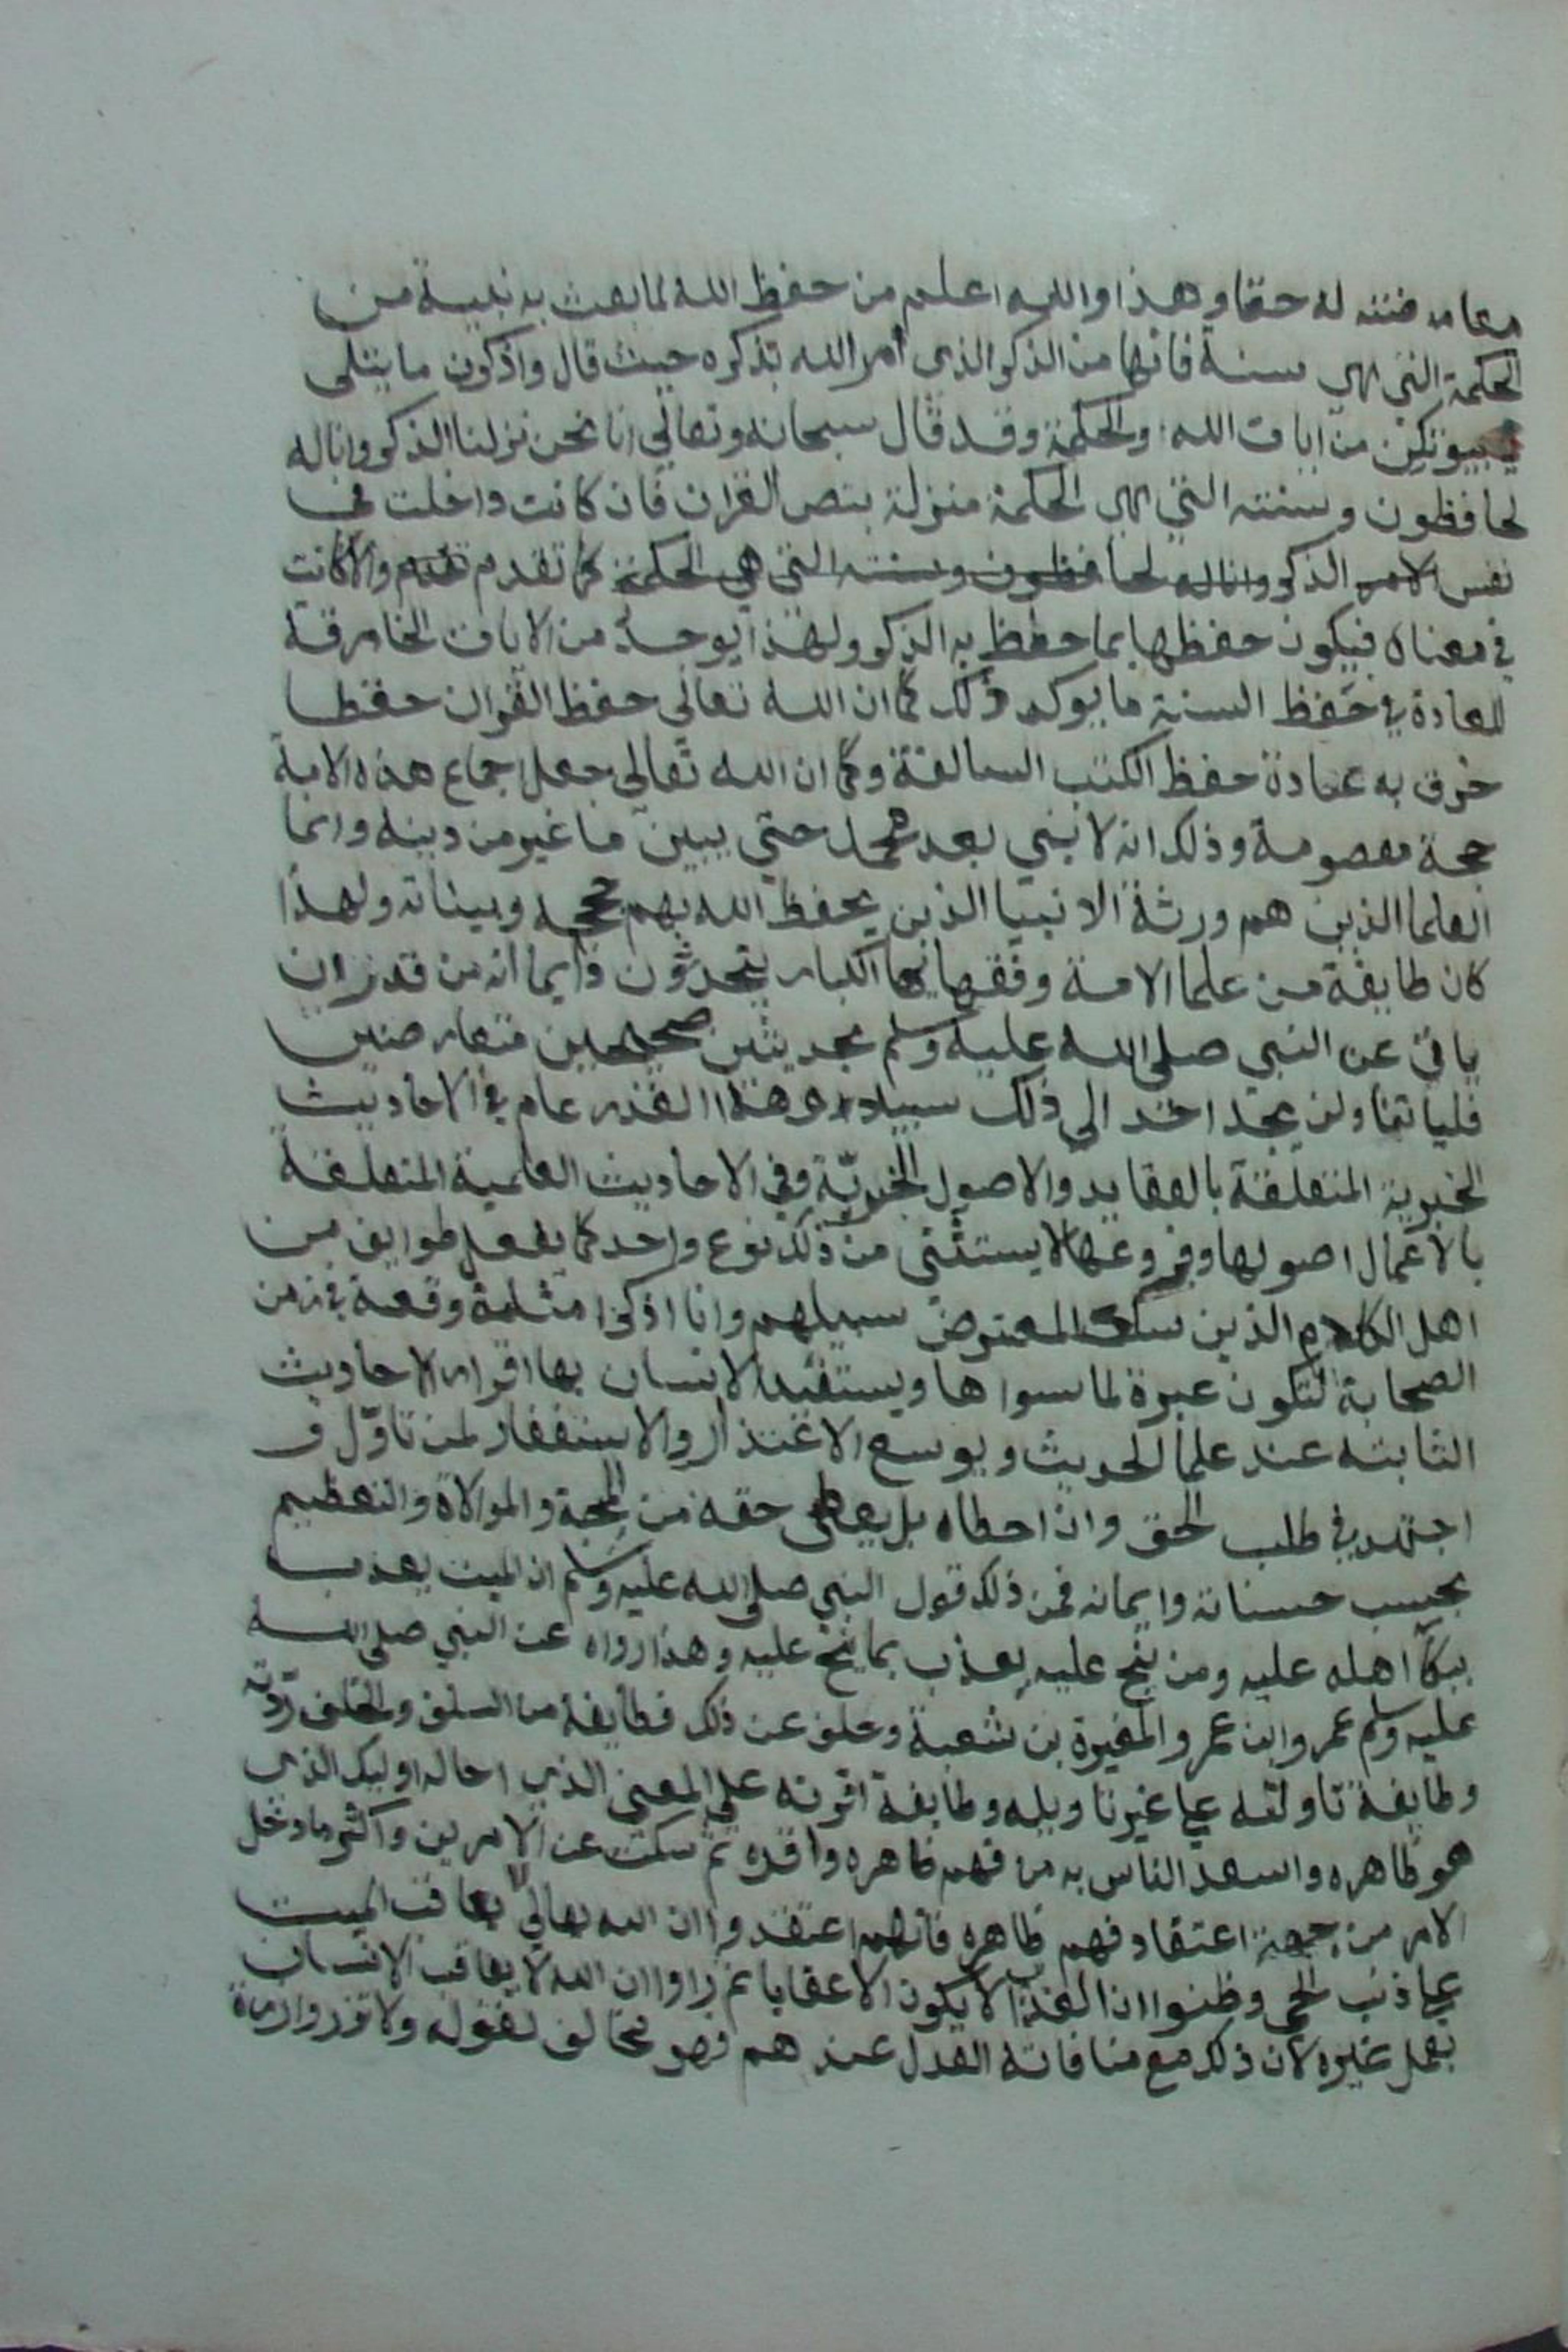 معارضته له حقا وهذا والله اعلم من حفظ الله لما بعث به نبيه من
الحكمة التي هي سنة فانها من الذكر الذي أمر الله بذكره حيث قال واذكرن ما يتلى
في بيوتكن من ايات الله والحكمة وقد قال سبحانه وتعالى انا نحن نزلنا الذكر وانا له
لحافظون وسنته التي هي الحكمة منزلة بنص القران فان كانت داخلت في
نفس الامر الذكر وانا له لحافظون وسنته التي هي الحكمة كما تقدم والا كانت
في معناه فيكون حفظها بما حفظ به الذكر ولهذا يوجد من الايات الخارقة
للعادة في حفظ السنة ما يوكد ذلك كما ان الله تعالى حفظ القران حفظا
خرق به عادة حفظ الكتب السالفة وكما ان الله تعالى جعل اجماع هذه الامة
حجة معصومة وذلك انه لا نبي بعد محمد حتى يبين ما غير من دينه وانما
العلما الذين هم ورثة الانبيا الذين يحفظ الله بهم حججه وبيناته ولهذا
كان طايفة من علما الامة وفقهايها الكبار يتحدثون دايما انه من قدر ان
ياتي عن النبي صلى الله عليه وسلم بحديثين صحيحين متعارضين
فلياتنا ولن يجد احد الى ذلك سبيلا وهذا القدر عام في الاحاديث
الخبرية المتعلقة بالعقايد والاصول الخبريّة وفي الاحاديث العلمية المتعلقة
بالاعمال اصولها وفروعها لا يستثنى من ذلك نوع واحد كما يفعل طوايف من
اهل الكلام الذين سلك المعترض سبيلهم وانا اذكر امثلة وقعة في زمن
الصحابة لتكون عبرة لما سواها ويستفيد الانسان بها اقرار الاحاديث
الثابته عند علما الحديث ويوسع الاعتذار والاستغفار لمن تاوّل و
اجتهد في طلب الحق وان اخطاه بل يعطى حقه من المحبة والموالاة والتعظيم
بحسب حسناته وايمانه فمن ذلك قول النبي صلى الله عليه وسلم ان الميت يعذب
ببكا اهله عليه ومن ينح عليه يعذب بما نيح عليه وهذا رواه عن النبي صلى الله
عليه وسلم عمر وابن عمر والمغيرة بن شعبة وخلق عن ذلك فطايفة من السلف والخلف ردّته
وطايفة تاولته على غير تاويله وطايفة اقرته على المعنى الذي احاله اوليك الذي
هو ظاهره واسعد الناس به من فهم ظاهره واقره ثم سكت عن الامرين واكثر ما دخل
الامر من جهة اعتقاد فهم ظاهره فانهم اعتقدوا ان الله تعالى لا يعاقب الميت
على ذنب الحي وظنوا ان العذاب لا يكون الا عقابا ثم راوا ان الله لا يعاقب الانسان
بعمل غيره لان ذلك مع منافاته العدل عندهم فهو مخالف لقوله ولا تزر وازرة